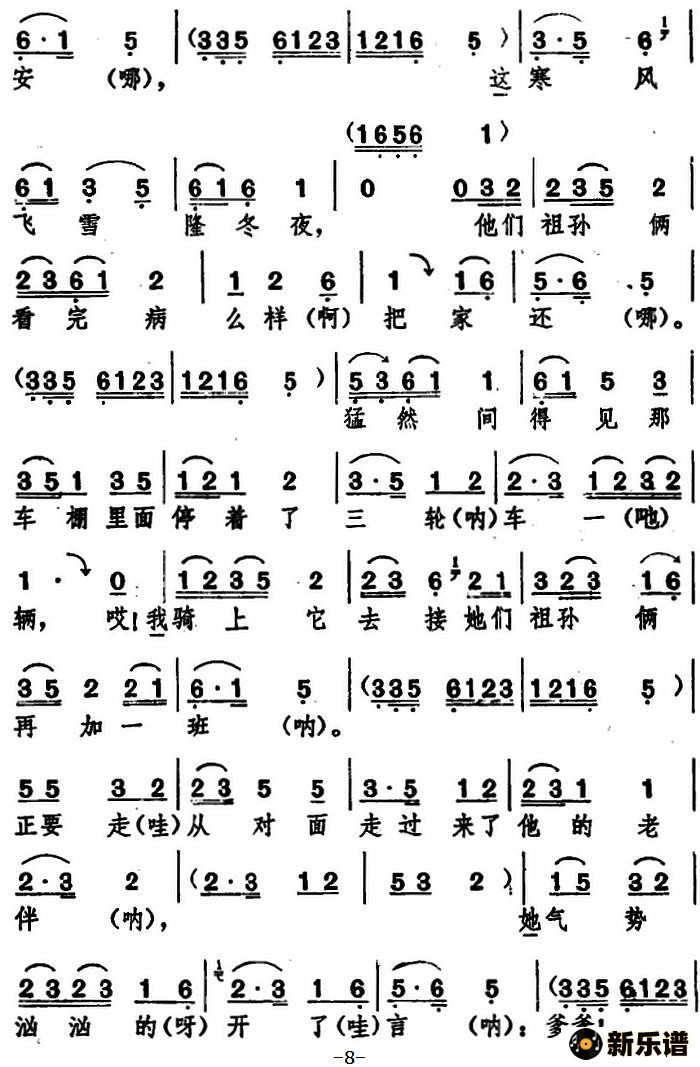 6·1 5 | (335 6123 | 1216 5) | 3·5 6 |
安 (哪), 这寒 风
(1656 1)
61 3 5 | 616 1 | 0 032 | 235 2 |
飞 雪 隆冬夜, 他们 祖孙 俩
2361 2 | 1 2 6 | 1 16 | 5·6 5 |
看 完 病 么样(啊) 把 家 还 (哪)。
(335 6123 | 1216 5) | 5361 1 | 61 5 3 |
猛 然 间 得 见 那
351 35 | 121 2 | 3·5 1 2 | 2·3 1232 |
车 棚里面 停 着 了 三 轮(呐) 车 一(吔)
1· 0 | 1235 2 | 23 6 21 | 323 16 |
辆, 哎!我骑 上 它 去 接她们 祖孙 俩
35 2 21 | 6·1 5 | (335 6123 | 1216 5) |
再 加一 班 (呐)。
55 3 2 | 23 5 5 | 3·5 12 | 231 1 |
正要 走(哇)从 对 面 走过 来了 他 的 老
2·3 2 | (2·3 12 | 53 2) | 15 32 |
伴 (呐), 她气 势
2323 1 6 | 2·3 1 6 | 5·6 5 | (335 6123 |
汹 汹 的(呀) 开 了(哇) 言 (呐): 爹爹!
新乐谱
-8-